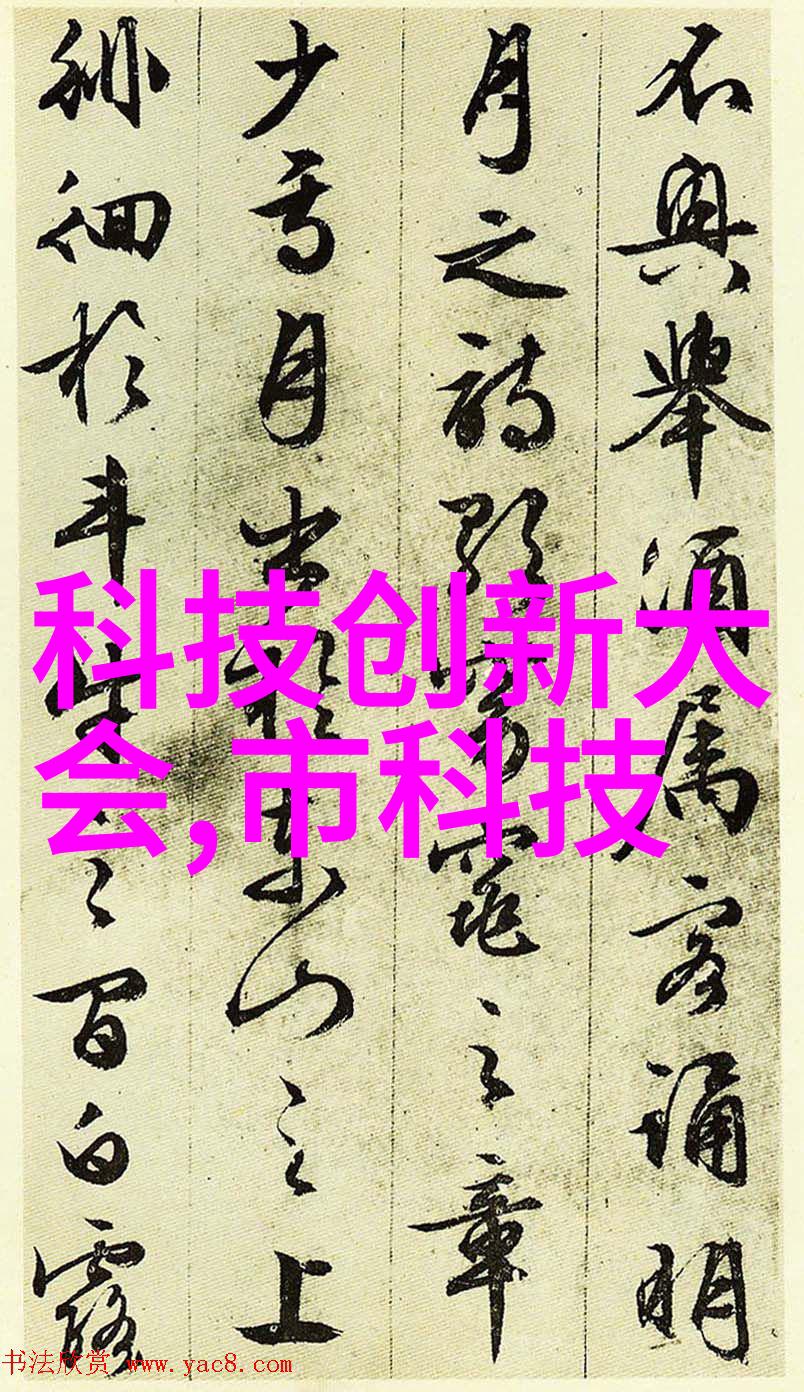 不興舉酒属客誦明
月之詩歌窈窕之章
少焉月出於東山之上
徘徊於斗牛之間白露
科技创新大
会,市科技
书法欣赏 www.yac8.com